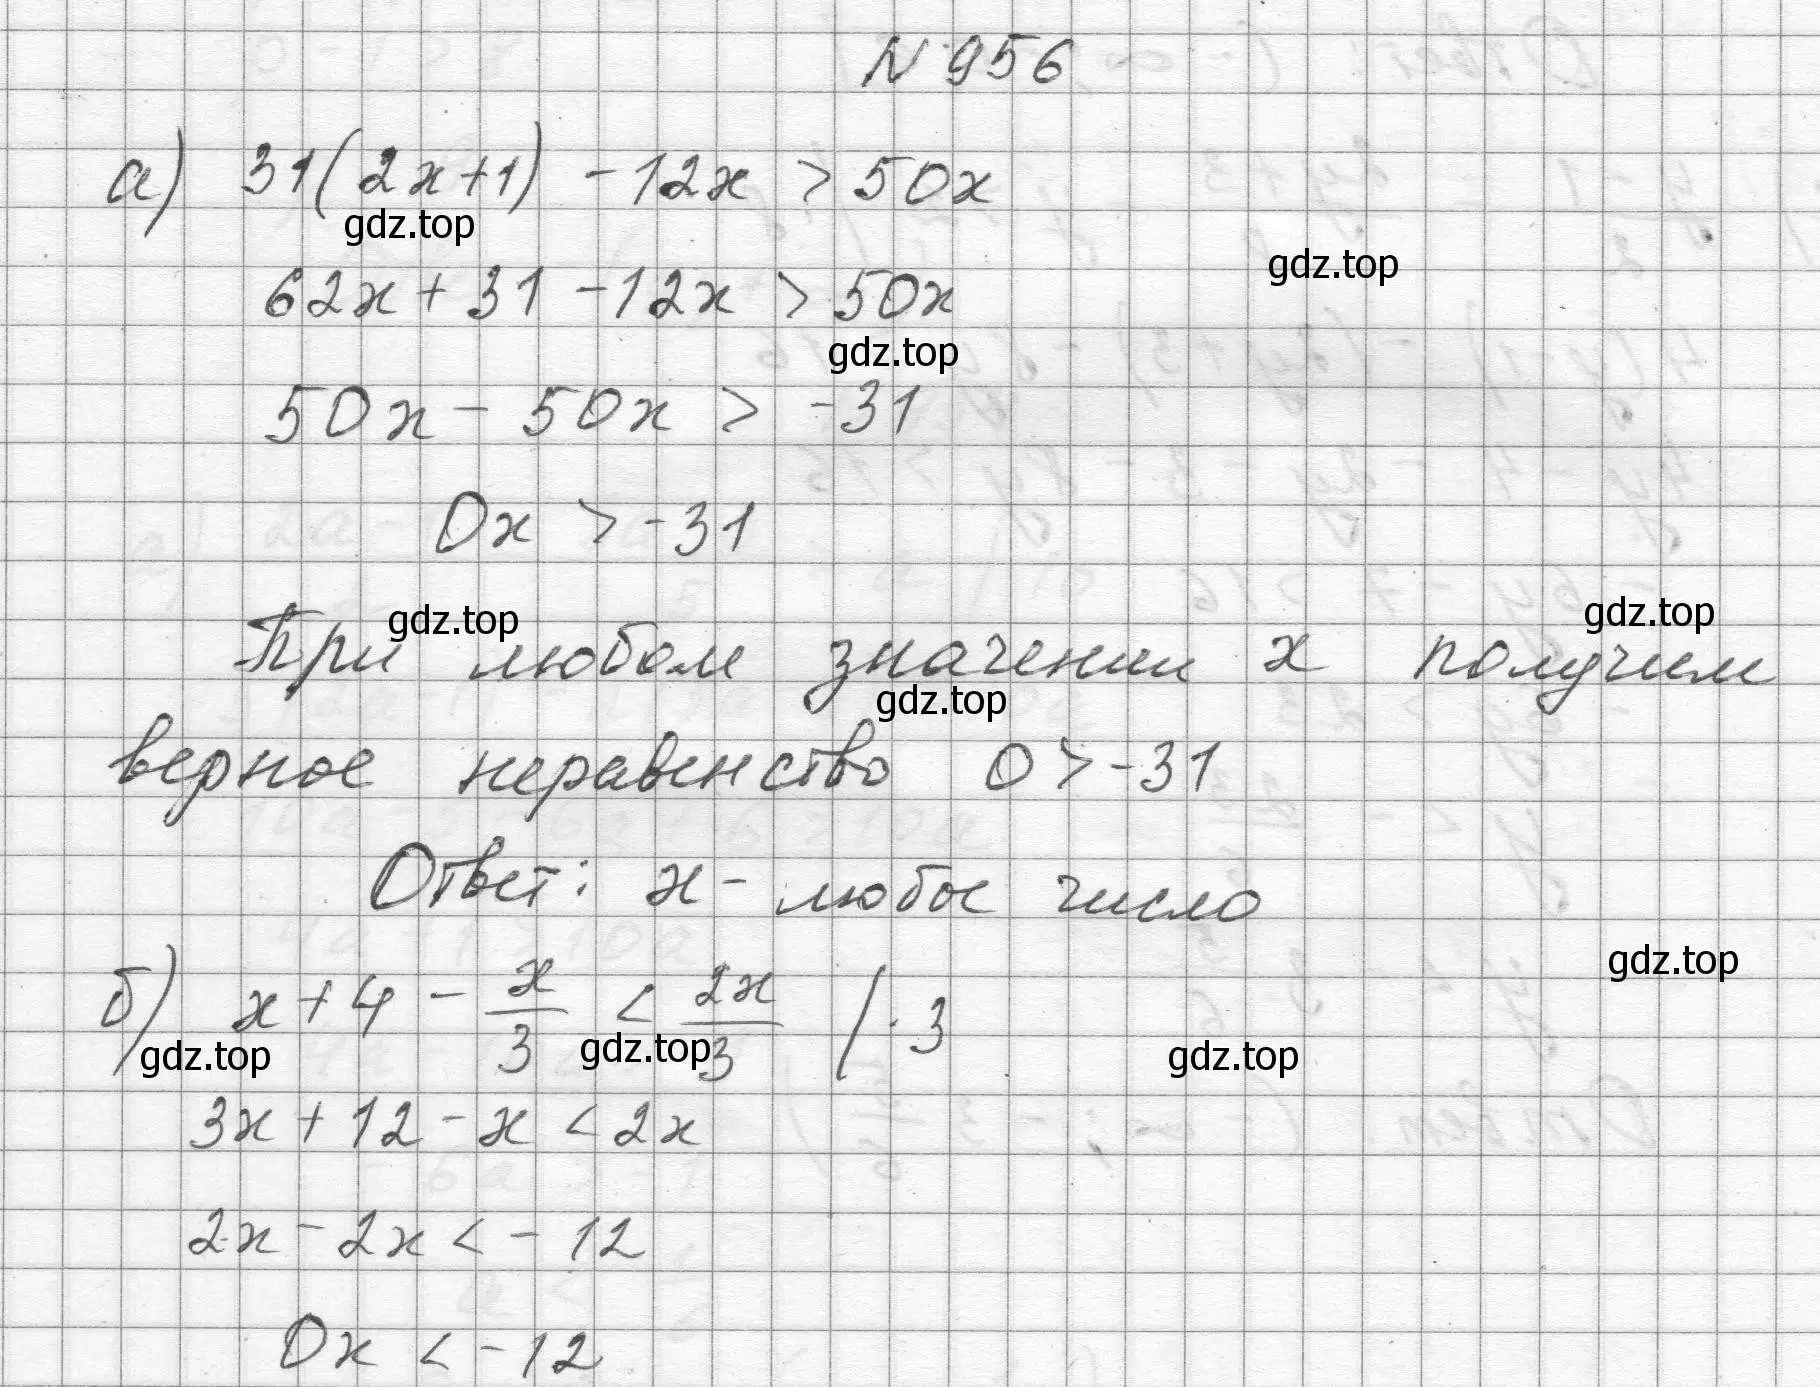 N 956
а) 31(2x+1) - 12x > 50x
gdz.top
gdz.top
62x + 31 - 12x > 50x
gdz.top
50x - 50x > -31
0x > -31
gdz.top
gdz.top
При любом значении x получим
gdz.top
верное неравенство 0 > -31
Ответ: x - любое число
gdz.top
б) x + 4 - x/3 < 2x/3 | · 3
gdz.top
gdz.top
gdz.top
3x + 12 - x < 2x
2x - 2x < - 12
0x < - 12